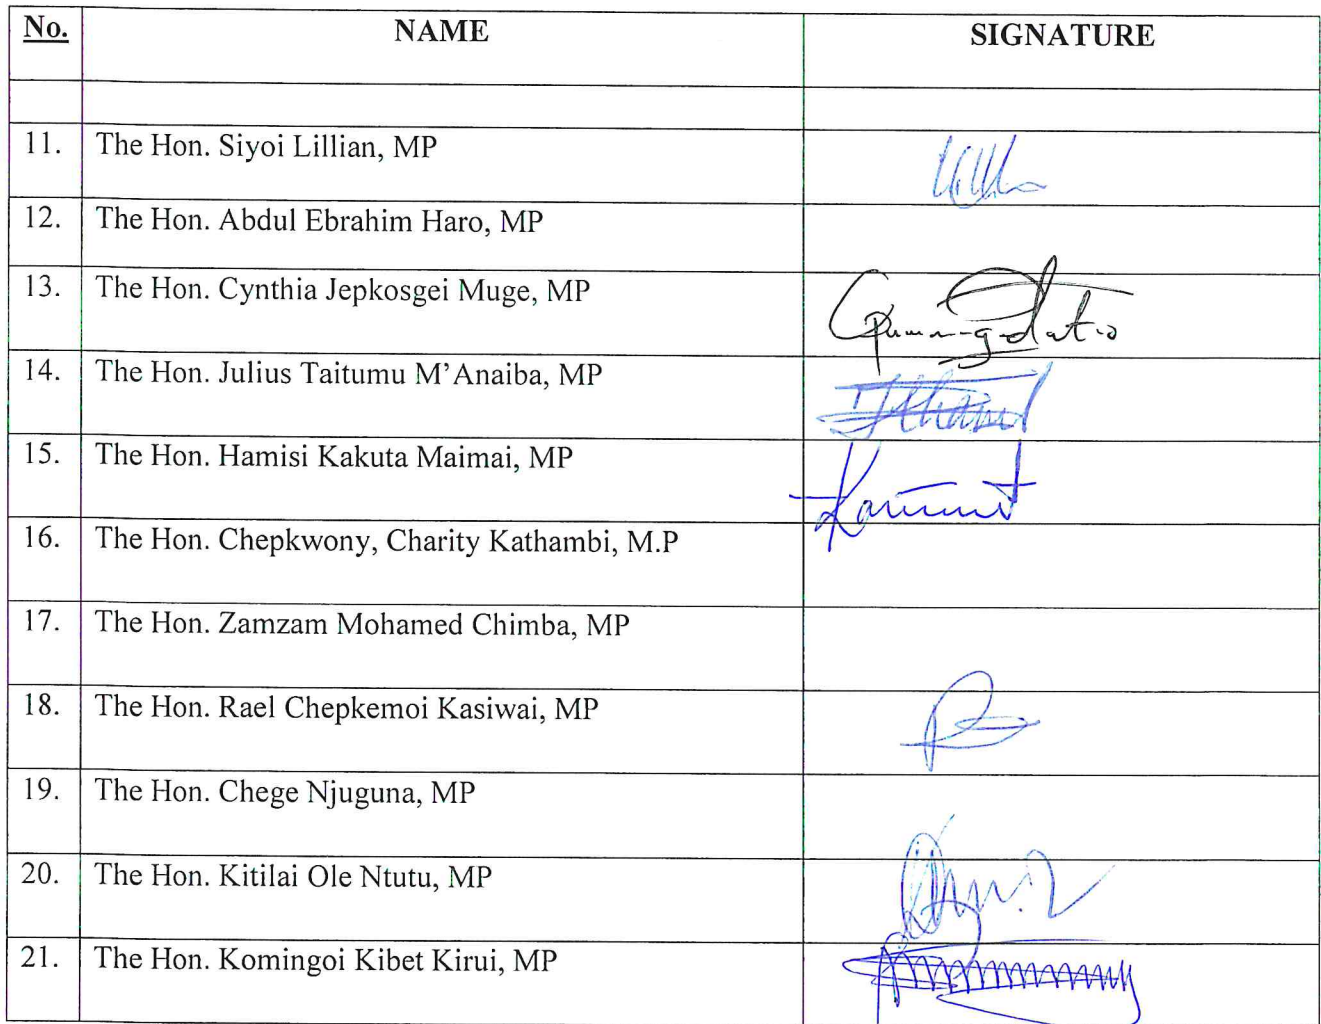 No. NAME SIGNATURE
11. The Hon. Siyoi Lillian, MP
12. The Hon. Abdul Ebrahim Haro, MP
13. The Hon. Cynthia Jepkosgei Muge, MP
14. The Hon. Julius Taitumu M’Anaiba, MP
15. The Hon. Hamisi Kakuta Maimai, MP
16. The Hon. Chepkwony, Charity Kathambi, M.P
17. The Hon. Zamzam Mohamed Chimba, MP
18. The Hon. Rael Chepkemoi Kasiwai, MP
19. The Hon. Chege Njuguna, MP
20. The Hon. Kitilai Ole Ntutu, MP
21. The Hon. Komingoi Kibet Kirui, MP